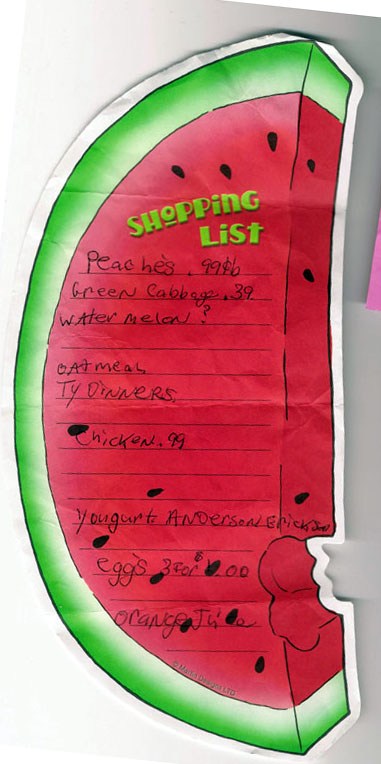 SHOPPING
LIST
Peaches .99lb
Green Cabbage .39
Water melon ?
Oatmeal
TV Dinners
Chicken .99
Yougurt Anderson Erickson
eggs 3 for $ .00
Orange Juice